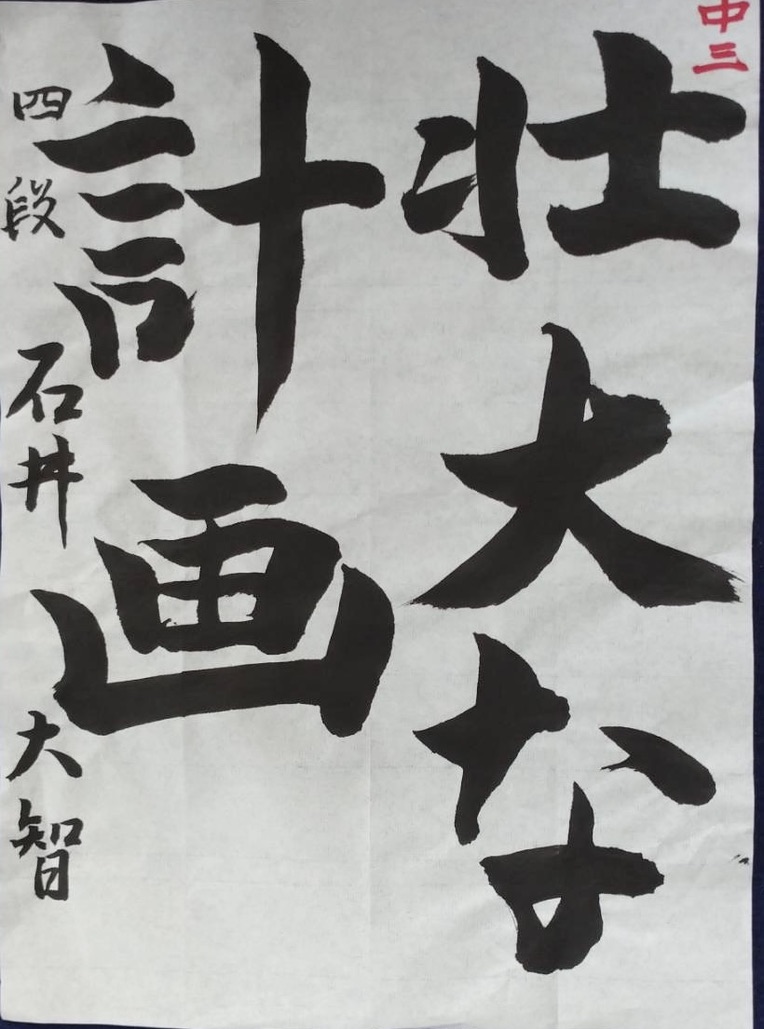 中三
壮大な
計画
四段 石井 大智